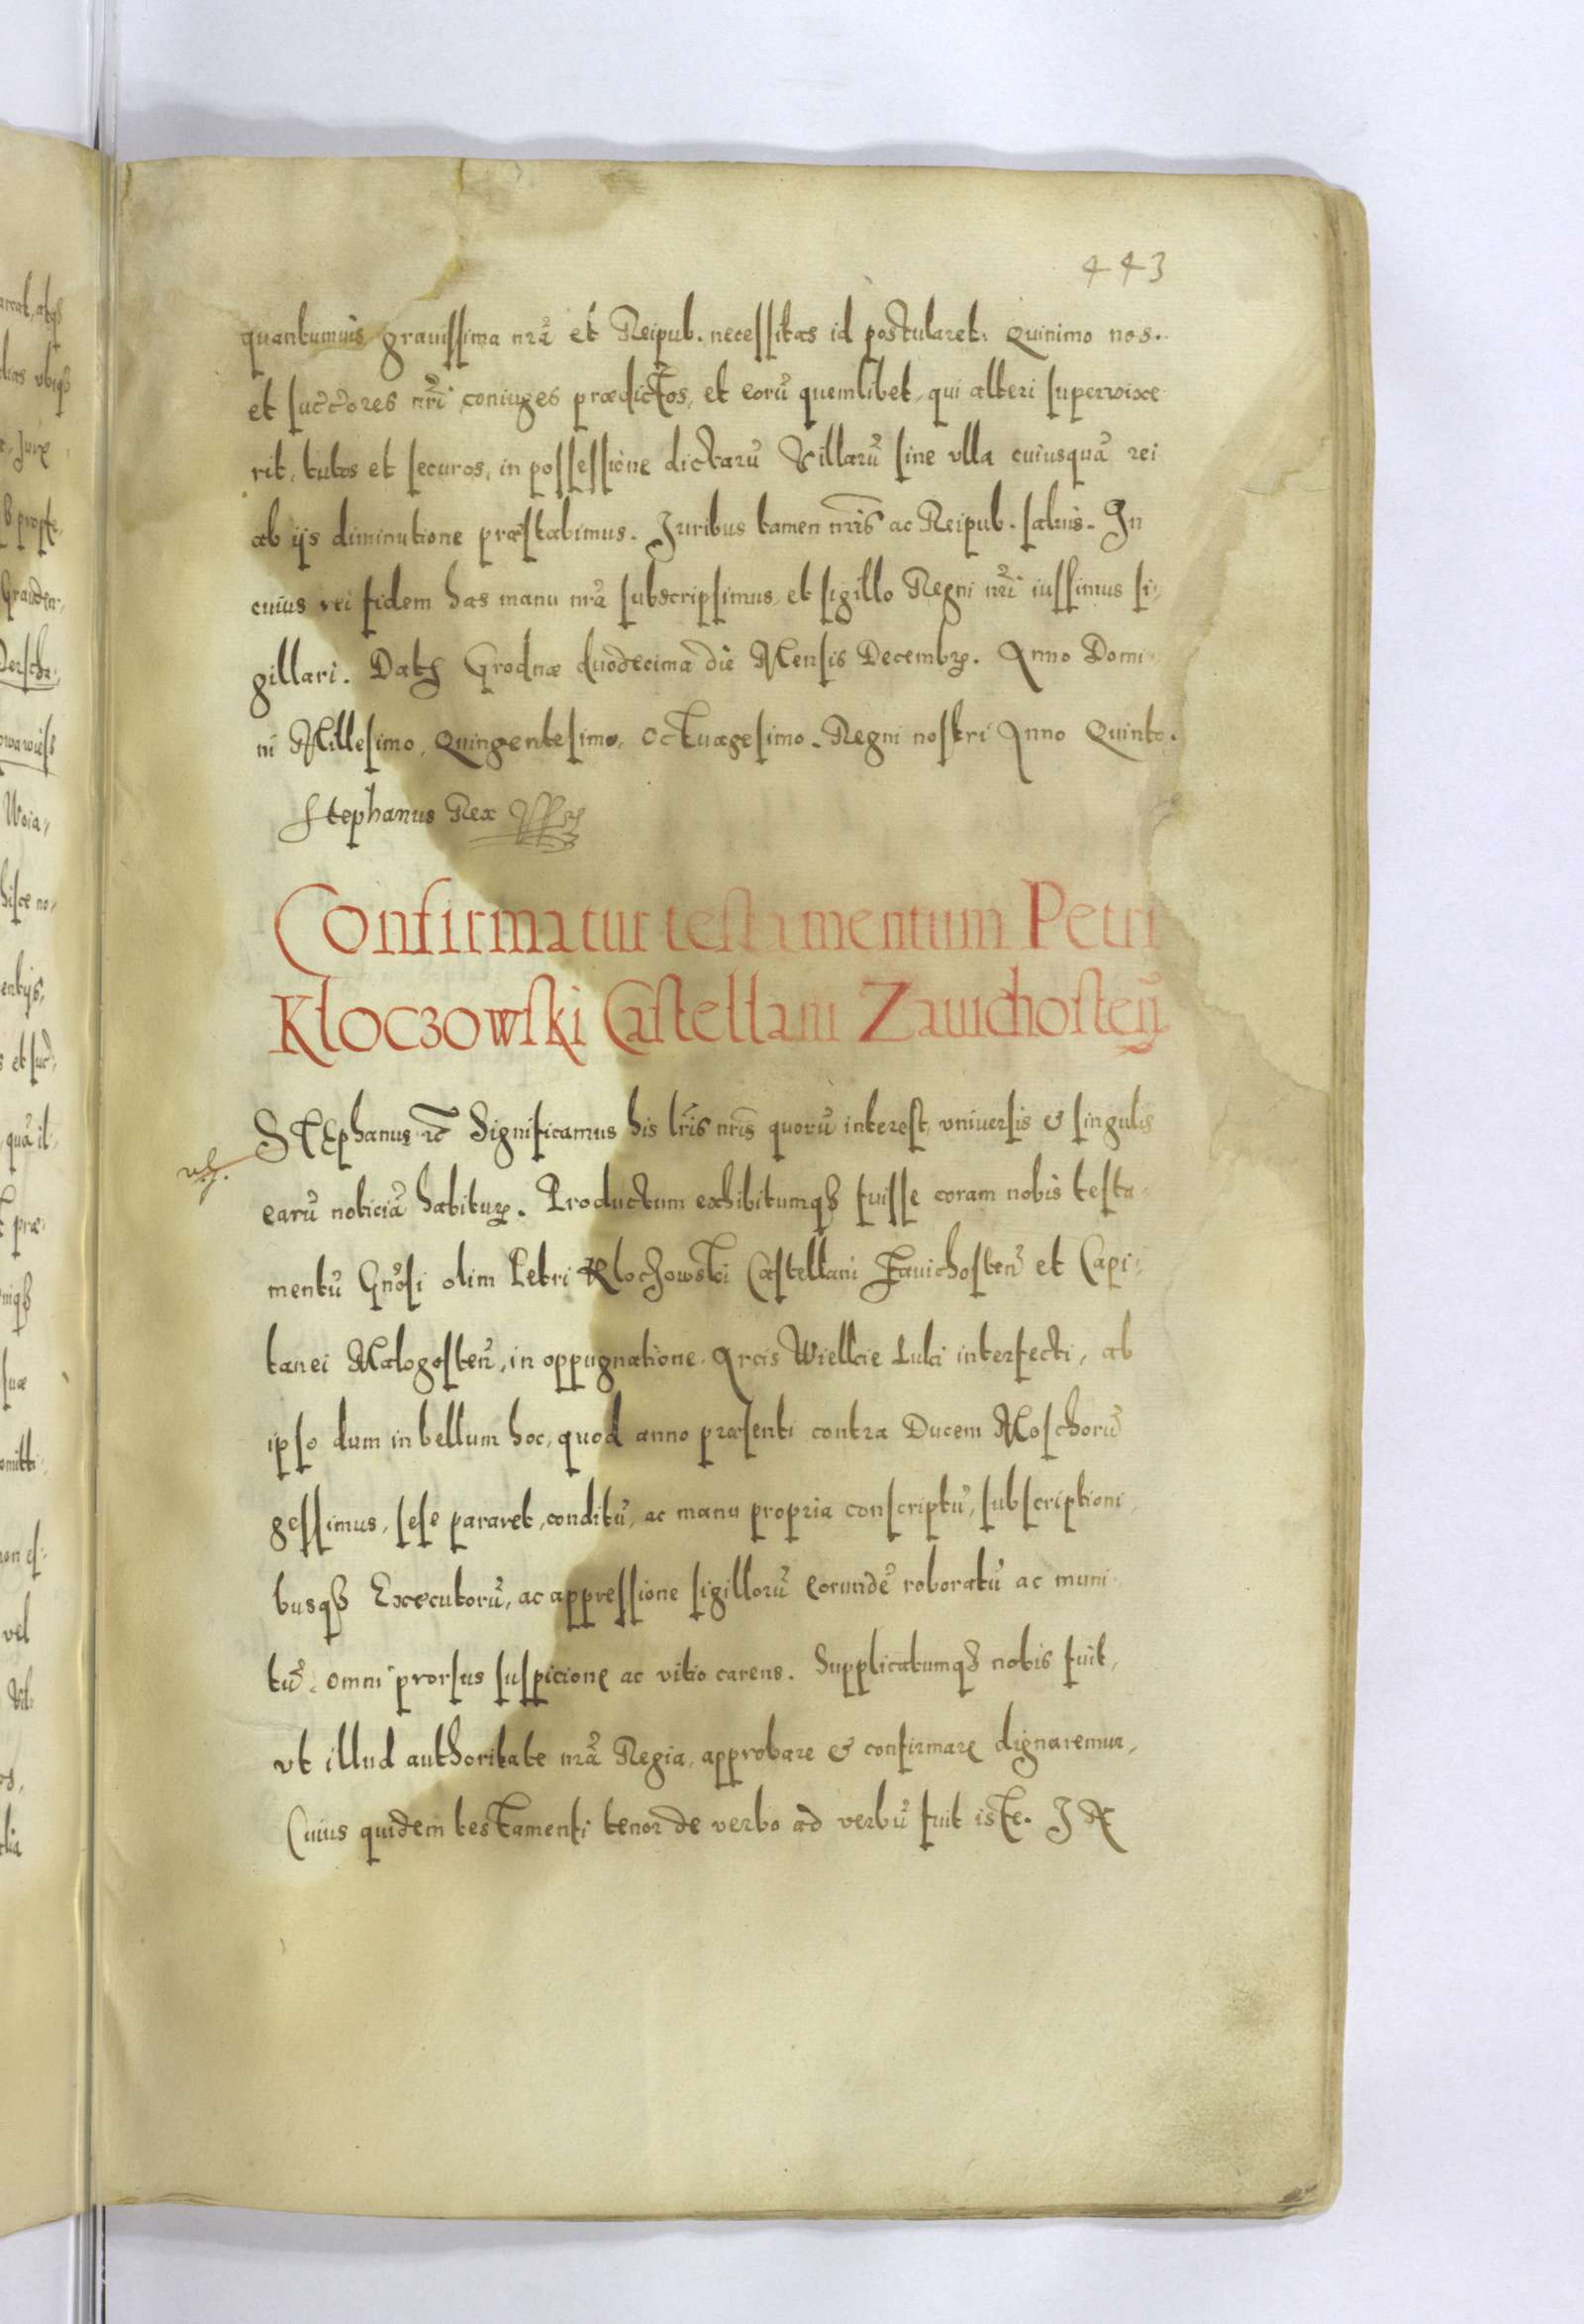 443
quantumuis grauissima nrã et Reipub. necessitas id postularet. Quinimo nos.
et succ̃ores nrĩ coniuges prædictos, et eorũ quemlibet, qui alteri superuixe
rit, tutos et securos, in possessione dictarũ Villarũ sine vlla cuiusquã rei
ab ijs diminutione præstabimus. Iuribus tamen nrĩs ac Reipub. saluis. In
cuius rei fidem has manu nrã subscripsimus, et sigillo Regni nrĩ iussimus si,
gillari. Datũ Grodnæ duodecima die Mensis Decembꝝ. Anno Domi,
ni Millesimo, Quingentesimo, Octuagesimo. Regni nostri Anno Quinto.
Stephanus Rex
Confirmatur testamentum Petri
Kłoczowski Castellani Zauichosteñ
STEphanus ꝛc̃ Significamus his lrĩs nrĩs quorũ interest, vniuersis & singulis
earũ noticiã habituꝝ. Productum exhibitumqꝫ fuisse coram nobis testa,
mentũ Gnõsi olim Petri Kloczowski Castellani Zauichosteñ et Capi,
tanei Malogosteñ, in oppugnatione Arcis Wielkie Luki interfecti, ab
ipso dum in bellum hoc, quod anno præsenti contra Ducem Moschorũ
gessimus, sese pararet, conditũ, ac manu propria conscriptũ, subscriptioni,
busqꝫ Executorũ, ac appressione sigillorũ eorundẽ roboratũ ac muni,
tũ. omni prorsus suspicione ac vitio carens. Supplicatumqꝫ nobis fuit,
vt illud authoritate nrã Regia, approbare & confirmare dignaremur,
Cuius quidem testamenti tenor de verbo ad verbũ fuit iste. Ja